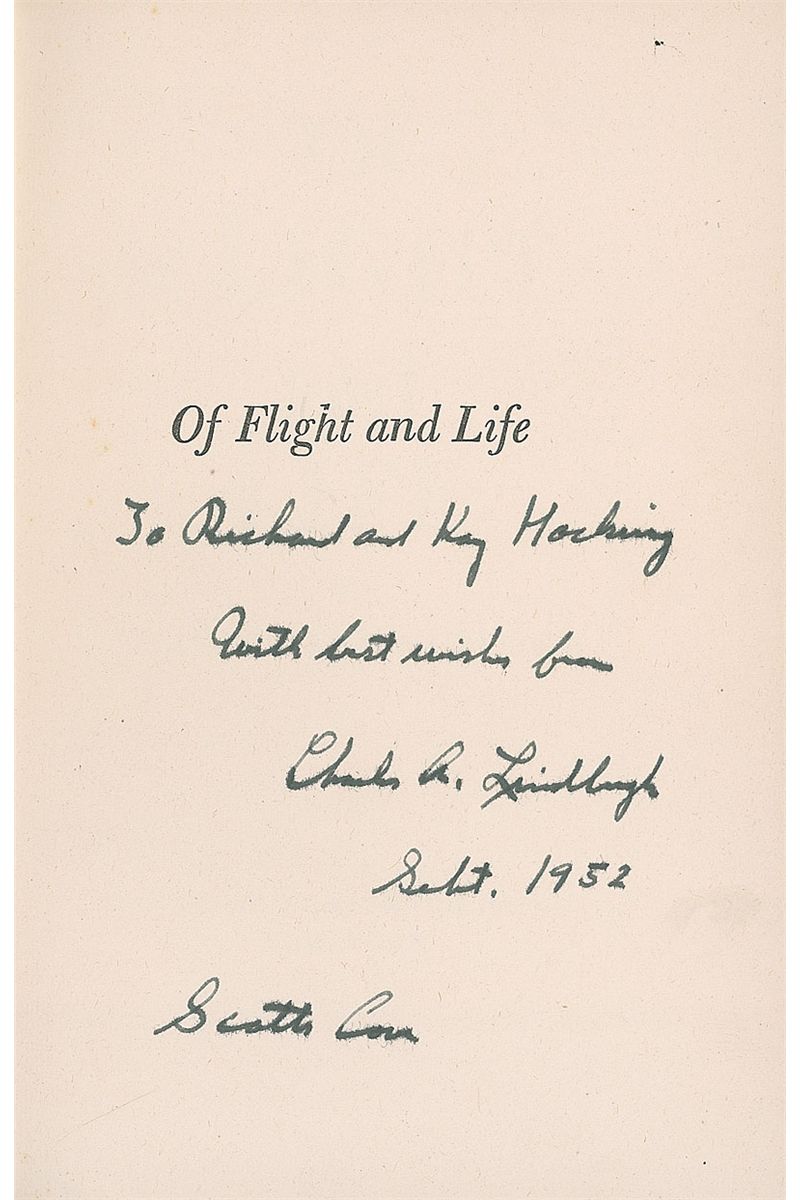 Of Flight and Life
To Richard and Kay Hocking
With best wishes from
Charles A. Lindbergh
Sept. 1952
Scotts Cove